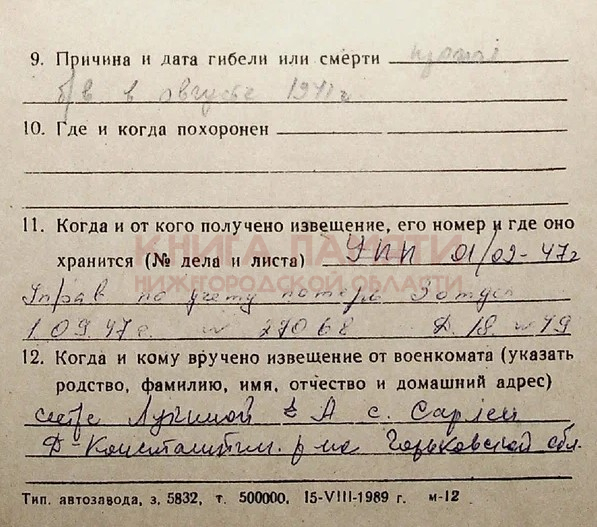 9. Причина и дата гибели или смерти пропал
б/в в августе 1941 г.
10. Где и когда похоронен
11. Когда и от кого получено извещение, его номер и где оно
хранится (№ дела и листа) УПП 01/09-47г
КНИГА ПАМЯТИ
НИЖЕГОРОДСКОЙ ОБЛАСТИ
Управ по учету потерь 3 отдел
1.09.47г. № 27068 Д. 18. л 79
12. Когда и кому вручено извещение от военкомата (указать
родство, фамилию, имя, отчество и домашний адрес)
Лушиной А с. Сарлей
Д-Константин. р-на Горьковской обл.
Тип. автозавода, з. 5832, т. 500000. 15-VIII-1989 г. м-12